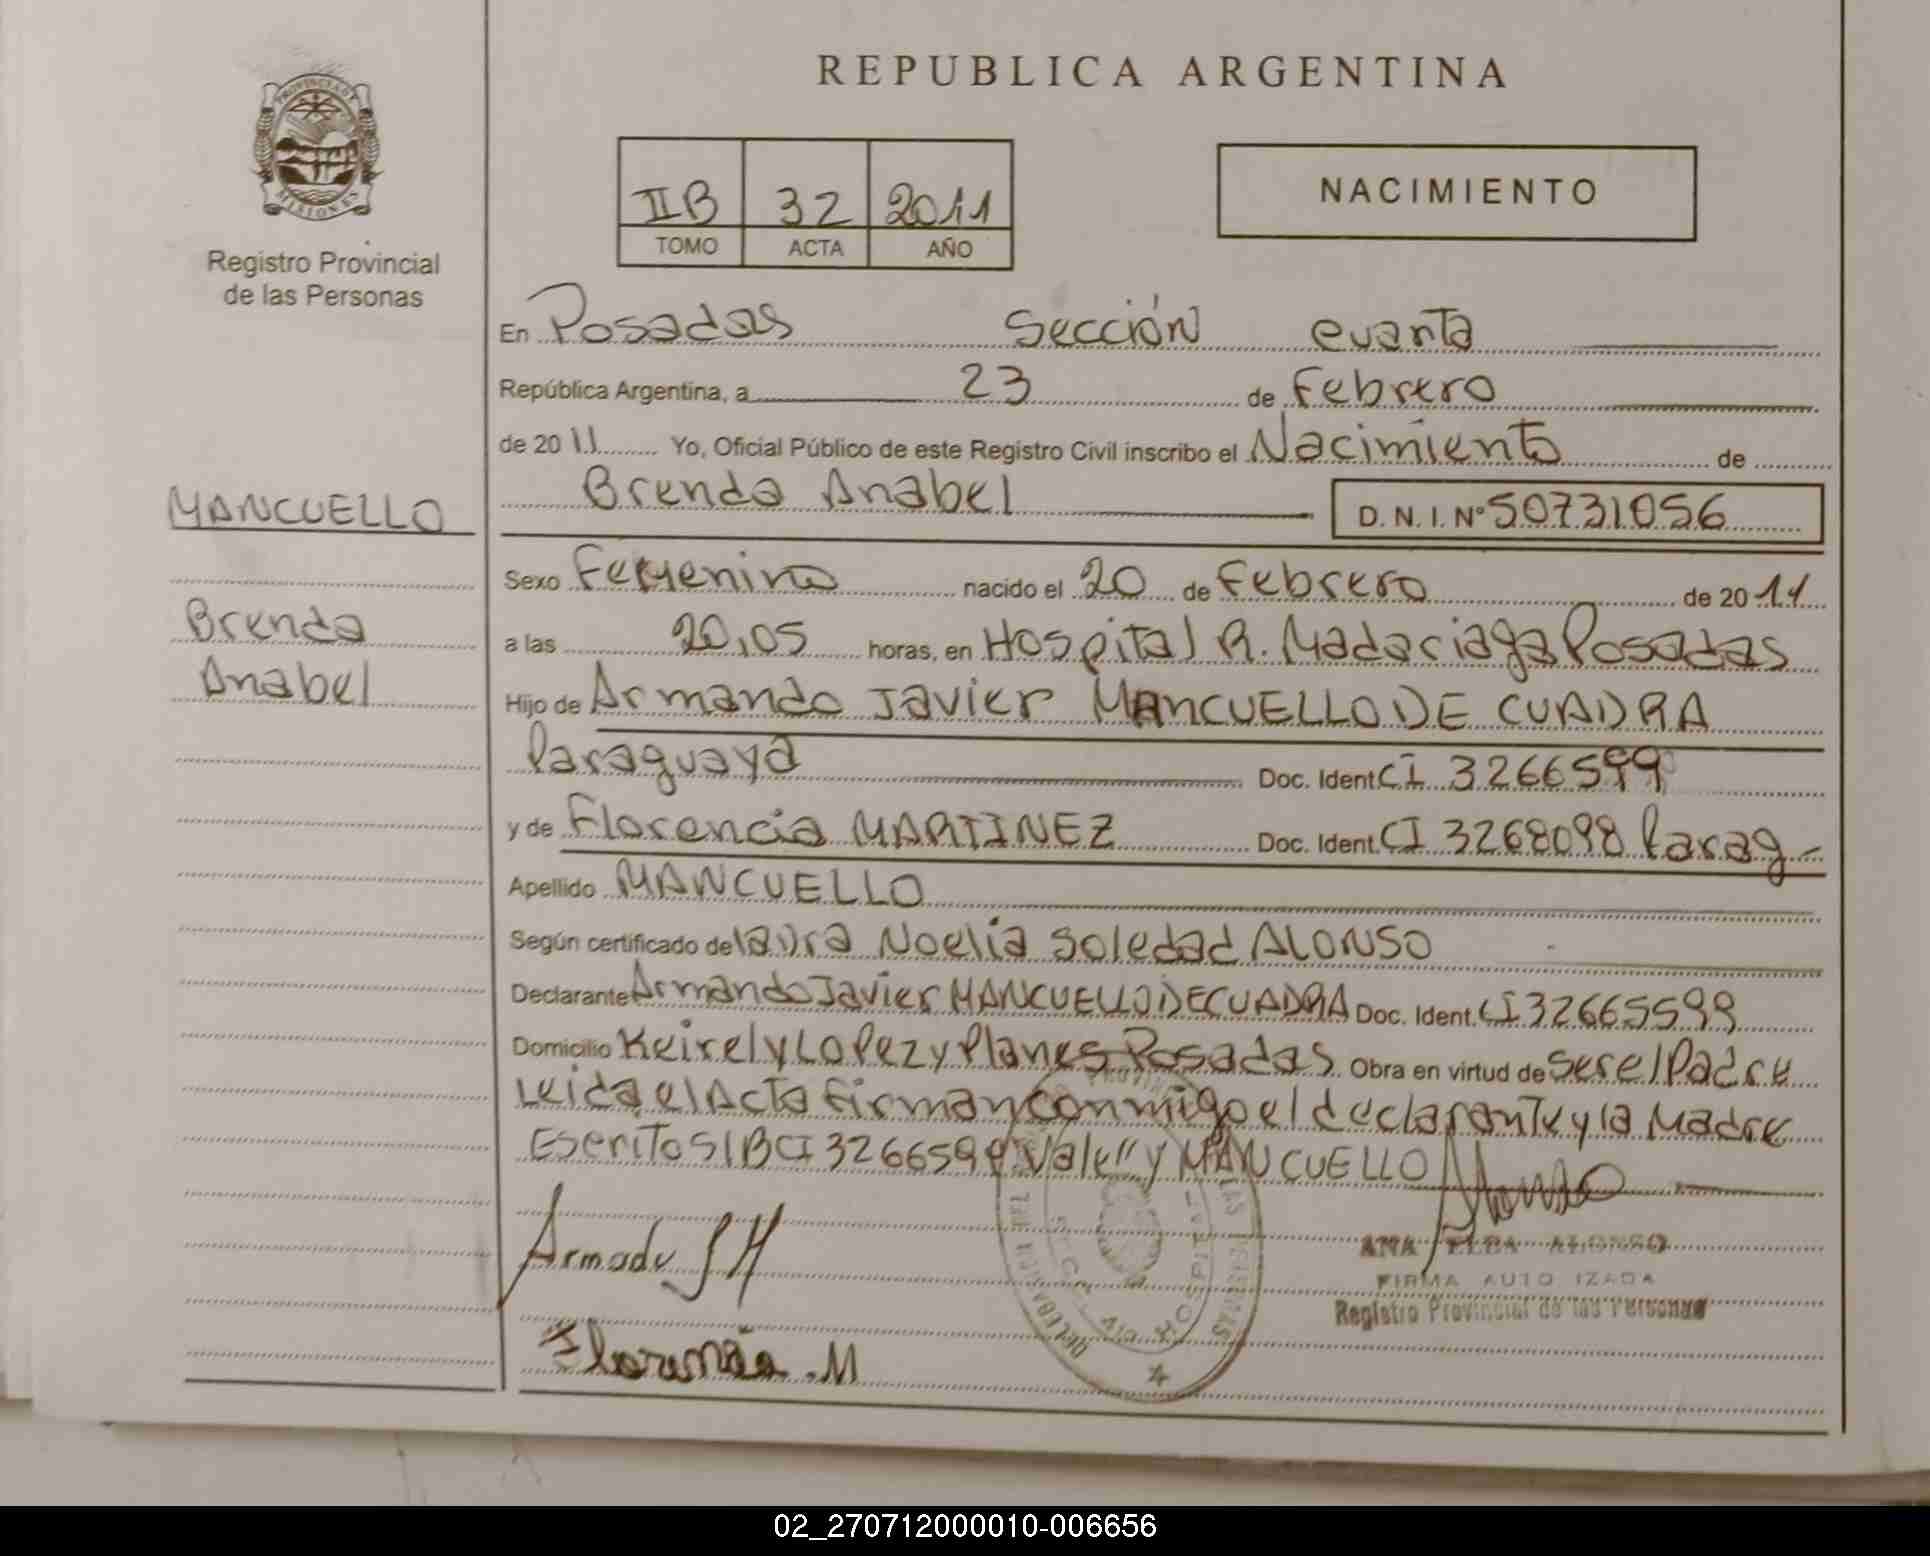 REPUBLICA ARGENTINA
PROVINCIA DE
MISIONES
Registro Provincial
de las Personas
IIB 32 2011
TOMO ACTA AÑO
NACIMIENTO
En Posadas Sección cuarta
República Argentina, a 23 de Febrero
de 2011 Yo, Oficial Público de este Registro Civil inscribo el Nacimiento de
MANCUELLO
Brenda Anabel D. N. I. Nº 50731056
Sexo Femenino nacido el 20 de Febrero de 2011
Brenda
a las 20,05 horas, en Hospital R. Madariaga Posadas
Anabel
Hijo de Armando Javier MANCUELLO DE CUADRA
Paraguaya Doc. Ident. CI 3266599
y de Florencia MARTINEZ Doc. Ident. CI 3268098 Parag-
Apellido MANCUELLO
Según certificado de laura Noelia Soledad ALONSO
Declarante Armando Javier MANCUELLO DE CUADRA Doc. Ident. CI 32665599
Domicilio Keirel y LOPEZ y Planes Posadas Obra en virtud de ser el Padre
Leida el Acta firman conmigo el declarante y la Madre
Escrito S/B CI 3266599 "Vale" y MANCUELLO
Armado J M
ANA ELBA ALONSO
FIRMA AUTO IZADA
Registro Provincial de las Personas
Florencia .M
02_270712000010-006656